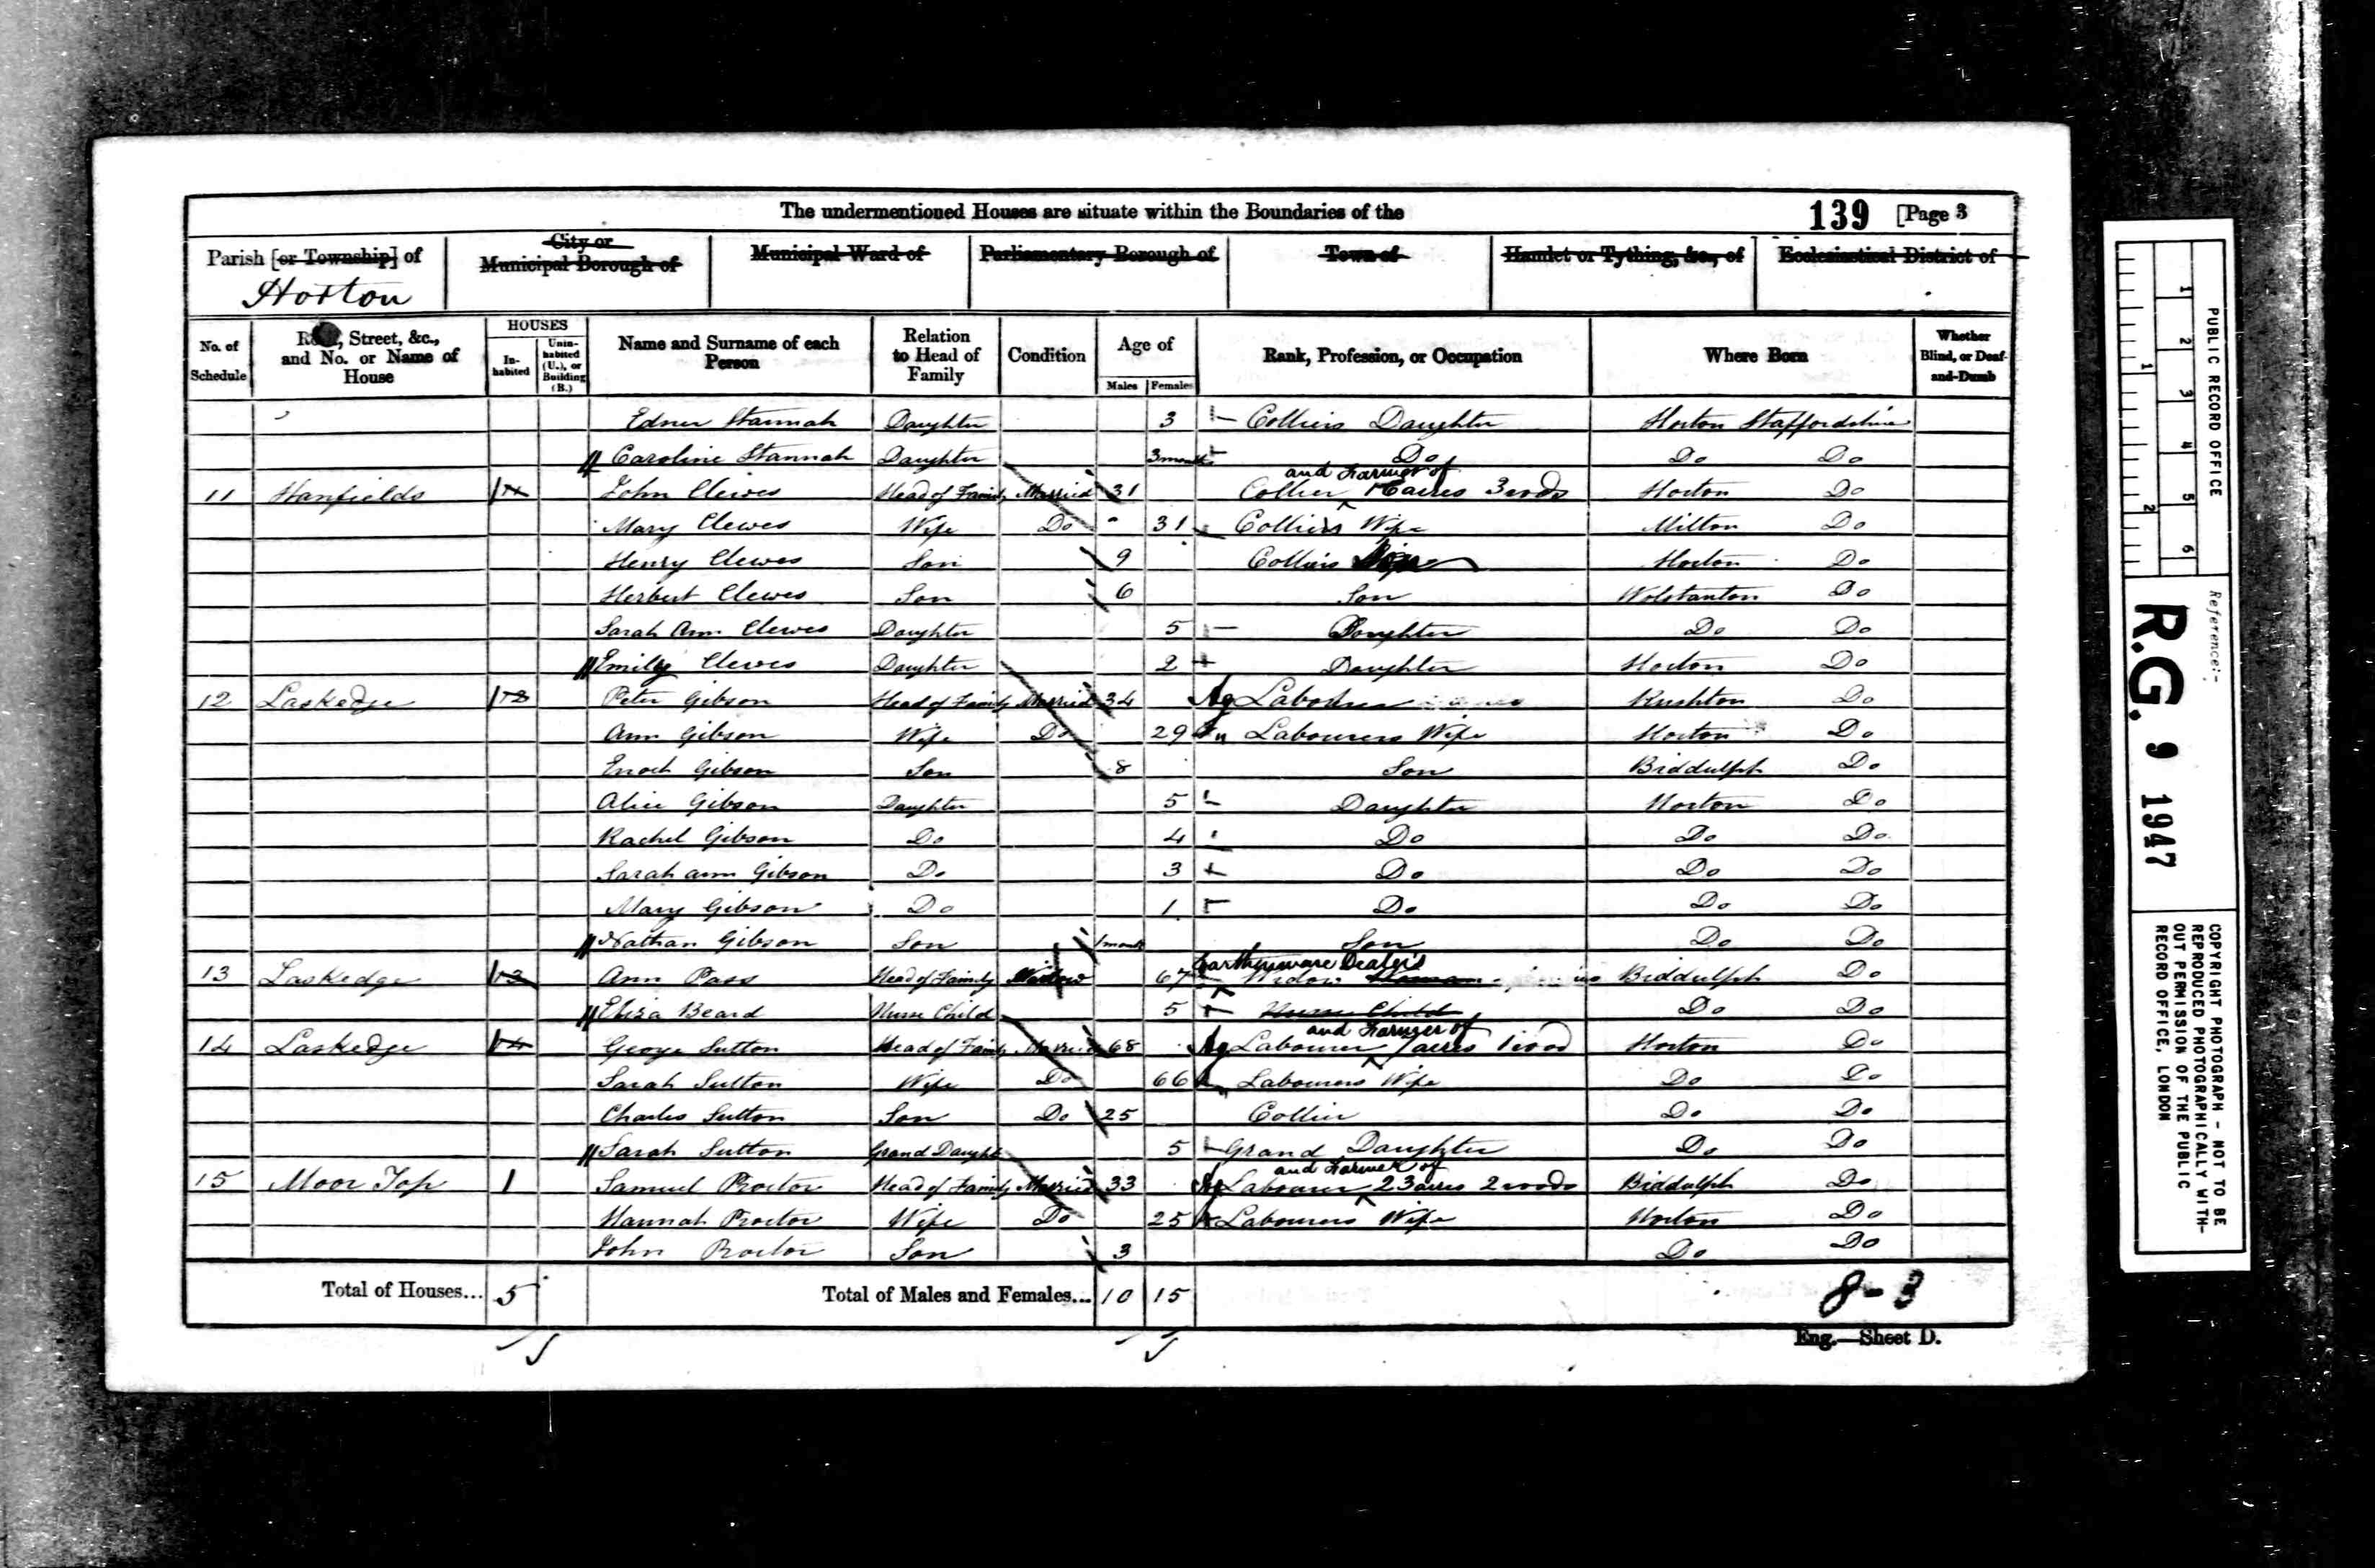 The undermentioned Houses are situate within the Boundaries of the
139 [Page 3
Parish [or Township] of
Horton
City or
Municipal Borough of
Municipal Ward of
Parliamentary Borough of
Town of
Hamlet or Tything, &c., of
Ecclesiastical District of
No. of Schedule
Street, &c., and No. or Name of House
HOUSES
In-habited
Unin-habited (U.), or Building (B.)
Name and Surname of each Person
Relation to Head of Family
Condition
Age of
Males Females
Rank, Profession, or Occupation
Where Born
Whether Blind, or Deaf-and-Dumb
Edner Hannah Daughter 3 Colliers Daughter Horton Staffordshire
Caroline Hannah Daughter 3 months Do Do Do
and Farmer of
11 Hanfields 1 John Clewes Head of Family Married 31 Collier acres 3 roods Horton Do
Mary Clewes Wife Do 31 Colliers Wife Milton Do
Henry Clewes Son 9 Colliers Horton Do
Herbert Clewes Son 6 Son Wolstanton Do
Sarah Ann Clewes Daughter 5 Daughter Do Do
Emily Clewes Daughter 2 Daughter Horton Do
12 Laskedge 1 Peter Gibson Head of Family Married 34 Ag Labourer Rushton Do
Ann Gibson Wife Do 29 Labourers Wife Horton Do
Enoch Gibson Son 8 Son Biddulph Do
Alice Gibson Daughter 5 Daughter Horton Do
Rachel Gibson Do 4 Do Do Do
Sarah ann Gibson Do 3 Do Do Do
Mary Gibson Do 1 Do Do Do
Nathan Gibson Son 1 month Son Do Do
Earthenware Dealers
13 Laskedge 1 Ann Pass Head of Family Widow 67 Widow Biddulph Do
Eliza Beard Nurse Child 5 Nurse Child Do Do
and Farmer of
14 Laskedge 1 George Sutton Head of Family Married 68 Ag Labourer 7 acres 1 rood Horton Do
Sarah Sutton Wife Do 66 Labourers Wife Do Do
Charles Sutton Son Do 25 Collier Do Do
Sarah Sutton Grand Daught 5 Grand Daughter Do Do
and Farmer of
15 Moor Top 1 Samuel Proctor Head of Family Married 33 Ag Labourer 23 acres 2 roods Biddulph Do
Hannah Proctor Wife Do 25 Labourers Wife Horton Do
John Proctor Son 3 Do Do
Total of Houses... 5 Total of Males and Females... 10 15
8-3
Eng.—Sheet D.
PUBLIC RECORD OFFICE
1 2 3 4 5 6
1 2
Reference:-
R.G. 9 1947
COPYRIGHT PHOTOGRAPH - NOT TO BE
REPRODUCED PHOTOGRAPHICALLY WITH-
OUT PERMISSION OF THE PUBLIC
RECORD OFFICE, LONDON